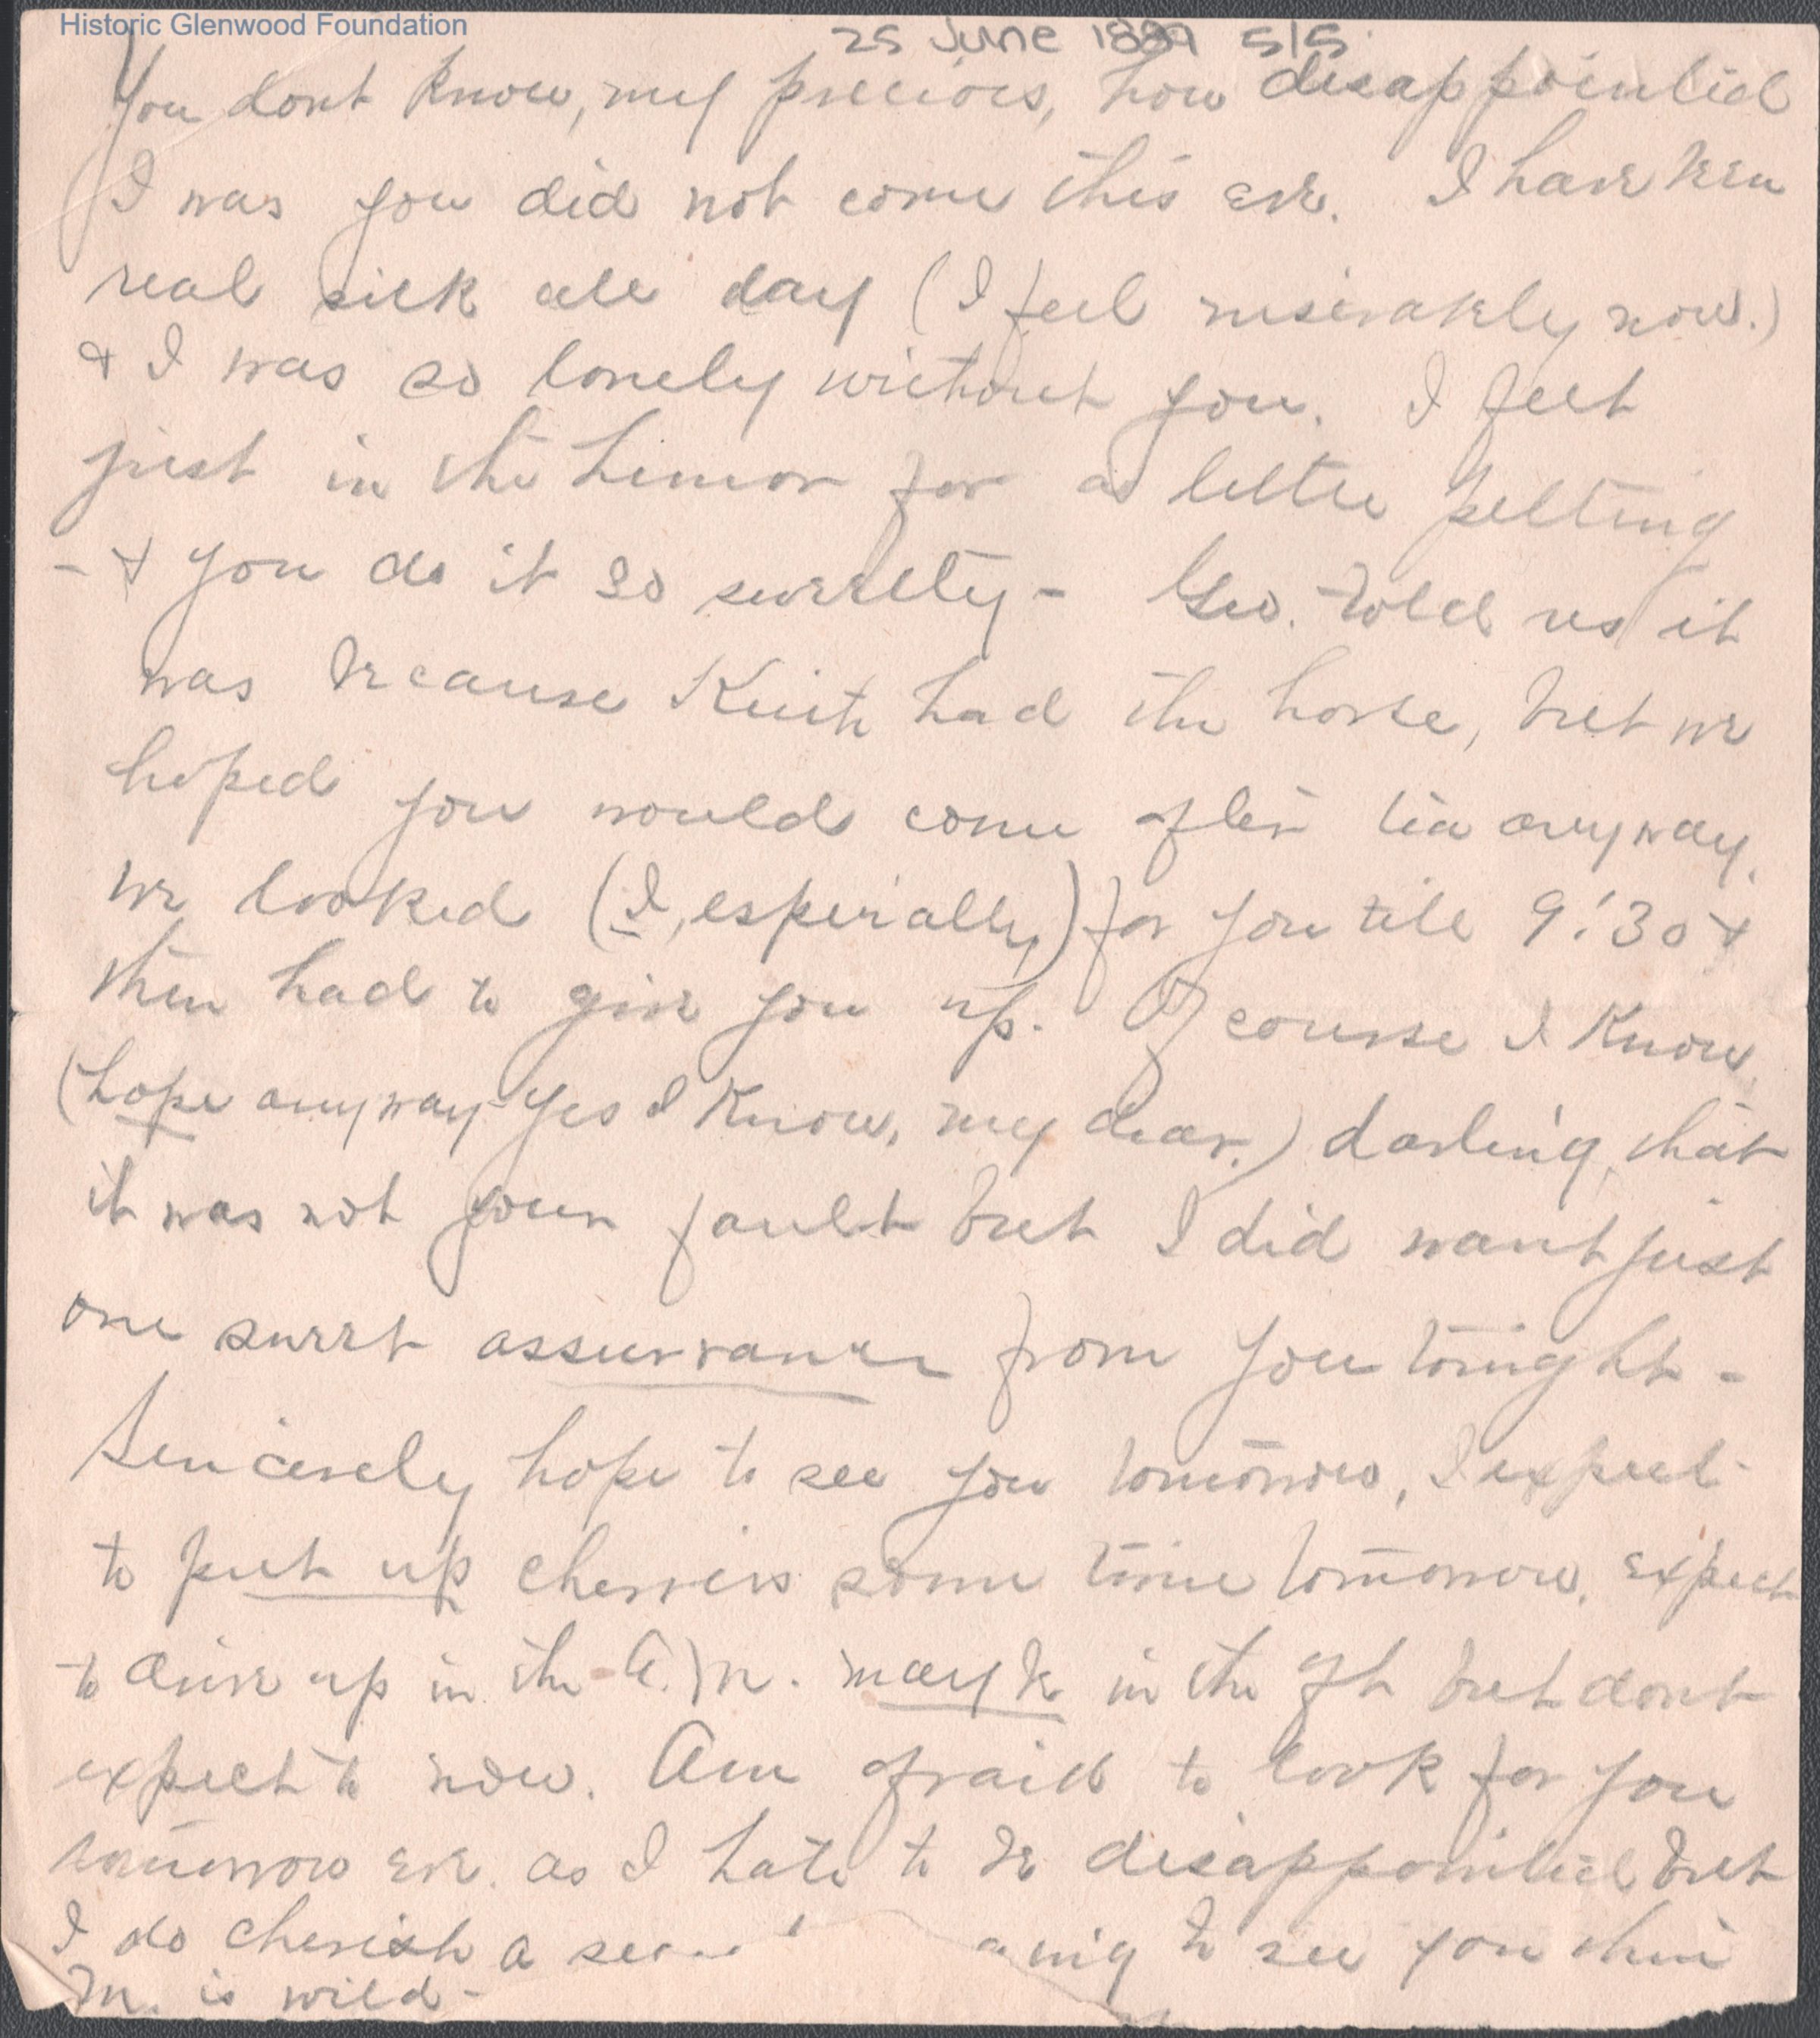 Historic Glenwood Foundation
25 June 1889 5/5
You dont know, my precious, how disappointed
I was you did not come this eve. I have been
real sick all day (I feel miserably now.)
& I was so lonely without you. I felt
just in the humor for a little petting
- & you do it so sweetly - Geo. told us it
was because Keith had the horse, but we
hoped you would come after tea anyway.
We looked (I, especially) for you till 9:30 &
then had to give you up. Of course I know
(hope anyway - yes I know, my dear.) darling, that
it was not your fault but I did want just
one sweet assurrance from you tonight -
Sincerely hope to see you tomorrow, I expect
to put up cherries some time tomorrow. Expect
to drive up in the A.M. may be in the aft but dont
expect to now. Am afraid to look for you
tomorrow eve. as I hate to be disappointed but
I do cherish a to see you then
M. is wild -